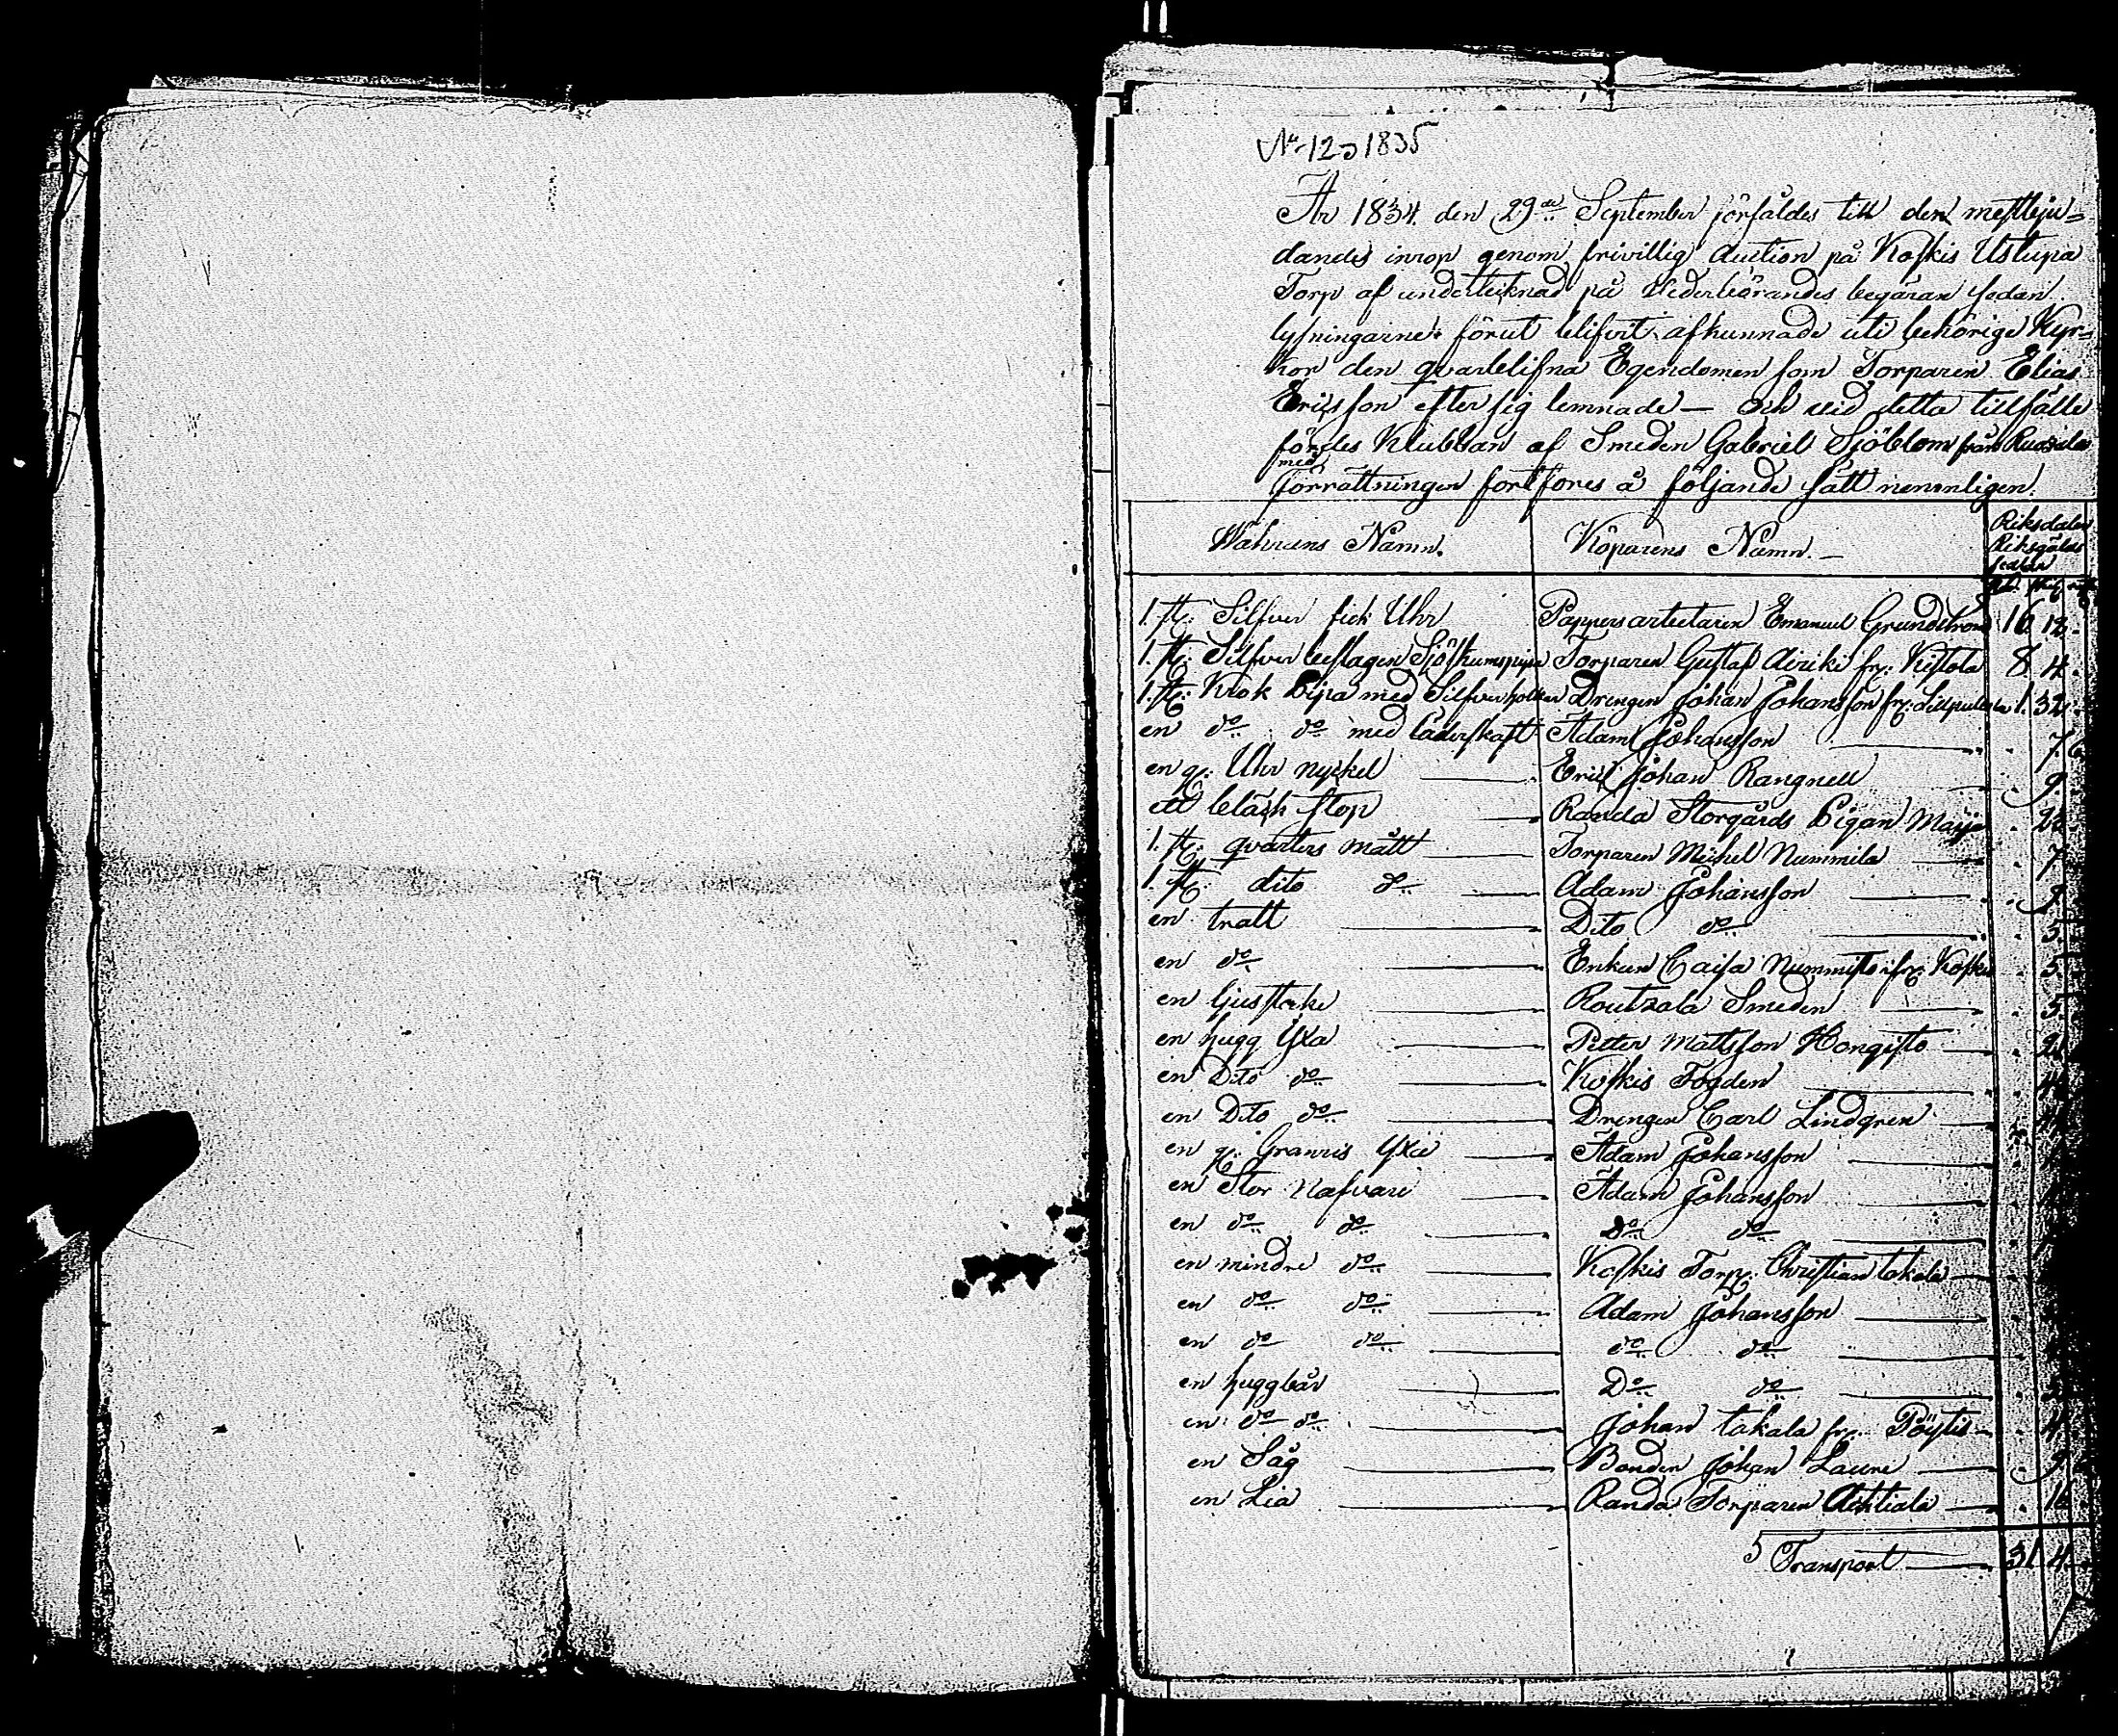 No 12 1835
År 1834 den 29de September försåldes till den mestbju=
dandes inrop genom frivillig Auction på Koskis Ustupa
Torp af undertecknad på Vederbörandes begäran sedan
lysningarne förut blifvit afkunnade uti behörige Kyr=
kor den qvarblifna Egendomen som Torparen Elias
Ericsson efter sig lemnade — och vid detta tillfälle
fördes Klubban af Smeden Gabriel Sjöblom från
med
förrättningen fortfores å följande sätt nemnligen.
Wahrans Namn. Köparens Namn. — Riksdaler
Riksgälds
sedlar
1. st: Silfver fick Uhr Pappersarbetaren Emanuel Grundström 16 12.
1. st: Silfver beslagen Sjöskumspipa Torparen Gustaf Airiki fr: Kistola 8 4.
1. st: Krok Pipa med Silfverholkar Drengen Johan Johansson fr: 1. 32.
en do do med läderskaft Adam Johansson 7. 6
en g: Uhr nyckel Eric Johan Rangnell . 9.
ett bläck stop Randa Storgårds Pigan Maija
1. st: qvarters mått Torparen Michel Nummila . 7.
1. st: dito do Adam Johansson . 9.
en tratt Dito do . 5.
en do Enkan Caisa Nummisto fr: Koskis . 5.
en ljusstake Routzala Smeden . 5.
en hugg Yxa Petter Mattsson Hongisto
en Dito do Koskis Fogden
en Dito do Drengen Carl Lindgren
en g: Granris Yxa Adam Johansson
en Stor Nafvare Adam Johansson
en do do Do do
en mindre do Koskis Torp: Christian takala
en do do Adam Johansson
en do do do do
en huggbår Do do
en do do Johan takala fr: Pöytis . 4.
en Såg Bonden Johan Laure . 9.
en Lia Randa Torparen Achtiala . 16
5 Transport 31. 4.